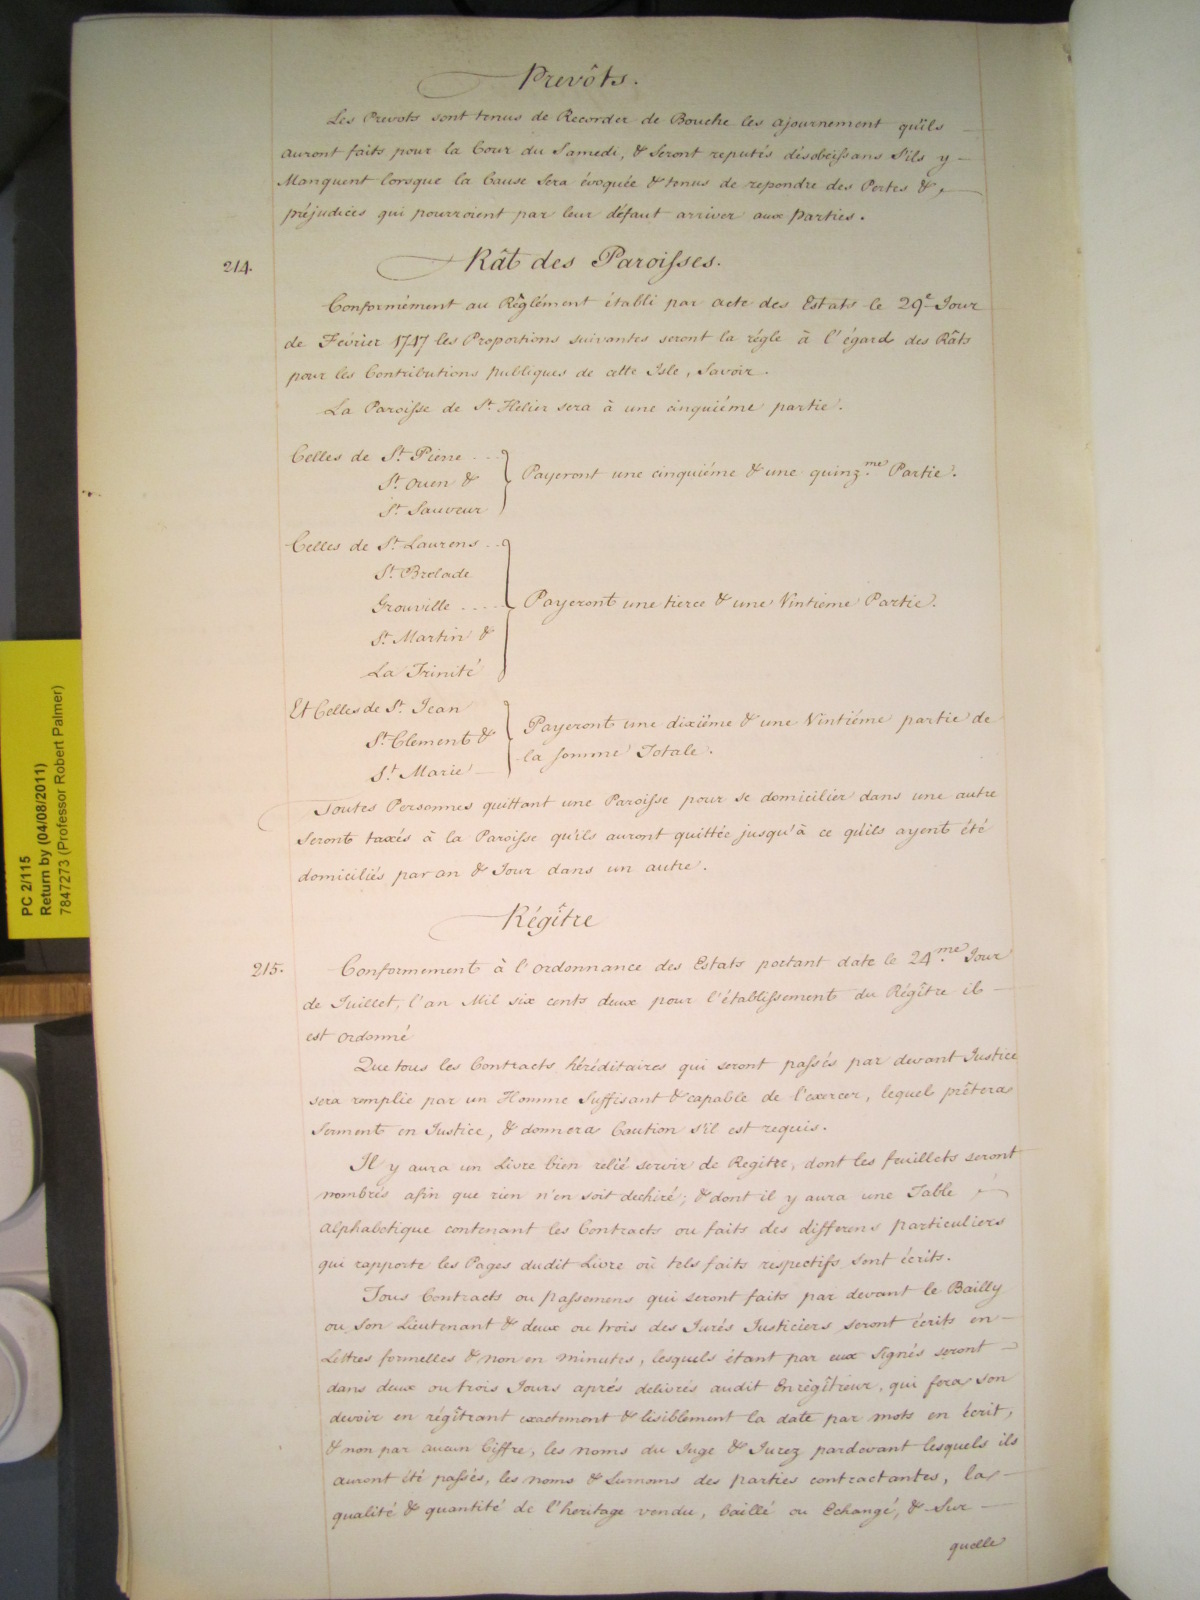 Prevôts.
Les Prevots sont tenus de Recorder de Bouche les ajournement qu'ils
auront faits pour la Cour du Samedi, & Seront reputés désobeissans S'ils y
Manquent lorsque la Cause Sera évoquée & tenus de repondre des Pertes &
préjudices qui pourroient par leur défaut arriver aux Parties.
214.
Rât des Paroisses.
Conformément au Réglément établi par acte des Estats le 29e Jour
de Février 1747 les Proportions suivantes seront la régle à l'égard des Râts
pour les Contributions publiques de cette Isle, Savoir.
La Paroisse de St. Helier sera à une cinquiéme partie.
Celles de St. Pierre
St. Ouen &
St. Sauveur
Payeront une cinquiéme & une quinz.me Partie.
Celles de St. Laurens
St. Brelade
Grouville
St. Martin &
La Trinité
Payeront une tierce & une Vintieme Partie.
Et Celles de St. Jean
St. Clement &
St. Marie
Payeront une dixiéme & une Vintiéme partie de
la somme Totale.
Toutes Personnes quittant une Paroisse pour se domicilier dans une autre
Seront taxés à la Paroisse qu'ils auront quittée jusqu'à ce qu'ils ayent été
domiciliés par an & Jour dans un autre.
Régître
215.
Conformement à l'ordonnance des Estats portant date le 24.me Jour
de Juillet, l'an Mil six cents deux pour l'établissement du Régître il
est ordonné
Que tous les Contracts héréditaires qui seront passés par devant Justice
sera remplie par un Homme Suffisant & capable de l'exercer, lequel prêtera
Serment en Justice, & donnera Caution s'il est requis.
Il y aura un Livre bien relié servir de Regitre, dont les feuillets seront
nombrés afin que rien n'en soit dechiré; & dont il y aura une Table
alphabetique contenant les Contracts ou faits des differens particuliers
qui rapporte les Pages dudit Livre où tels faits respectifs sont écrits.
Tous Contracts ou passemens qui seront faits par devant le Bailly
ou son Lieutenant & deux ou trois des Jurés Justiciers seront écrits en
Lettres formelles & non en minutes, lesquels étant par eux Signés seront
dans deux ou trois Jours aprés delivrés audit Enrégîtreur, qui fera son
devoir en régîtrant exactement & lisiblement la date par mots en écrit,
& non par aucun Ciffre, les noms du Juge & Jurez pardevant lesquels ils
auront été passés, les noms & Surnoms des parties contractantes, la
qualité & quantité de l'heritage vendu, baillé ou Echangé, & Sur
quelle
PC 2/115
Return by (04/08/2011)
7847273 (Professor Robert Palmer)